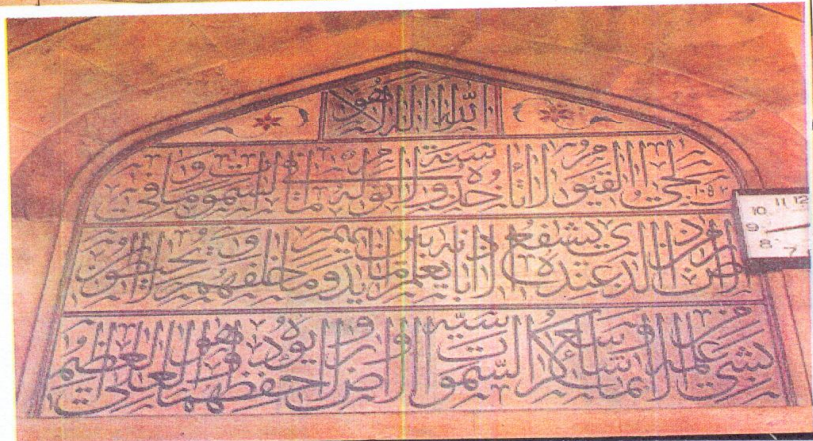 الله لا اله الا هو
الحي القيوم لا تاخذه سنة ولا نوم له ما في السموت وما في
الارض من ذا الذي يشفع عنده الا باذنه يعلم ما بين ايديهم وما خلفهم ولا يحيطون
بشيء من علمه الا بما شاء وسع كرسيه السموت والارض ولا يوده حفظهما وهو العلي العظيم
10 11 12
9
8 7